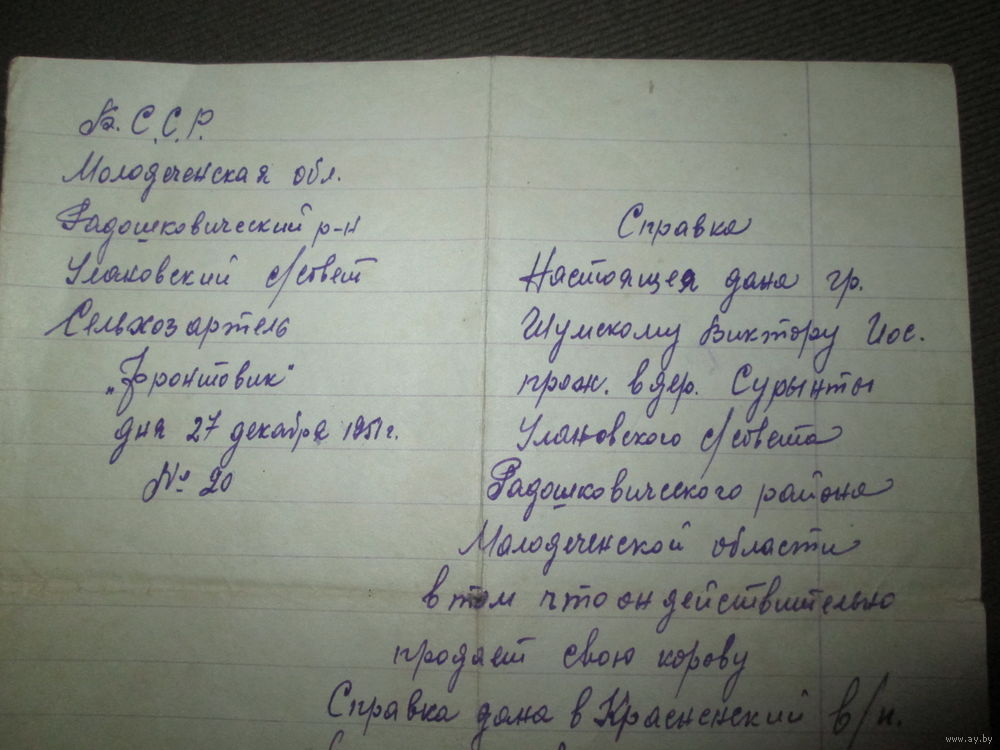 Б.С.С.Р.
Молодеченская обл.
Радошковический р-н
Улановский с/совет
Сельхозартель
„Фронтовик"
дня 27 декабря 1951 г.
№ 20
Справка
Настоящея дана гр.
Шумскому Виктору Иос.
прож. в дер. Сурынты
Улановского с/совета
Радошковического района
Малодеченской области
в том что он действительно
продает свою корову
Справка дана в Красненский в/н.
www.ay.by